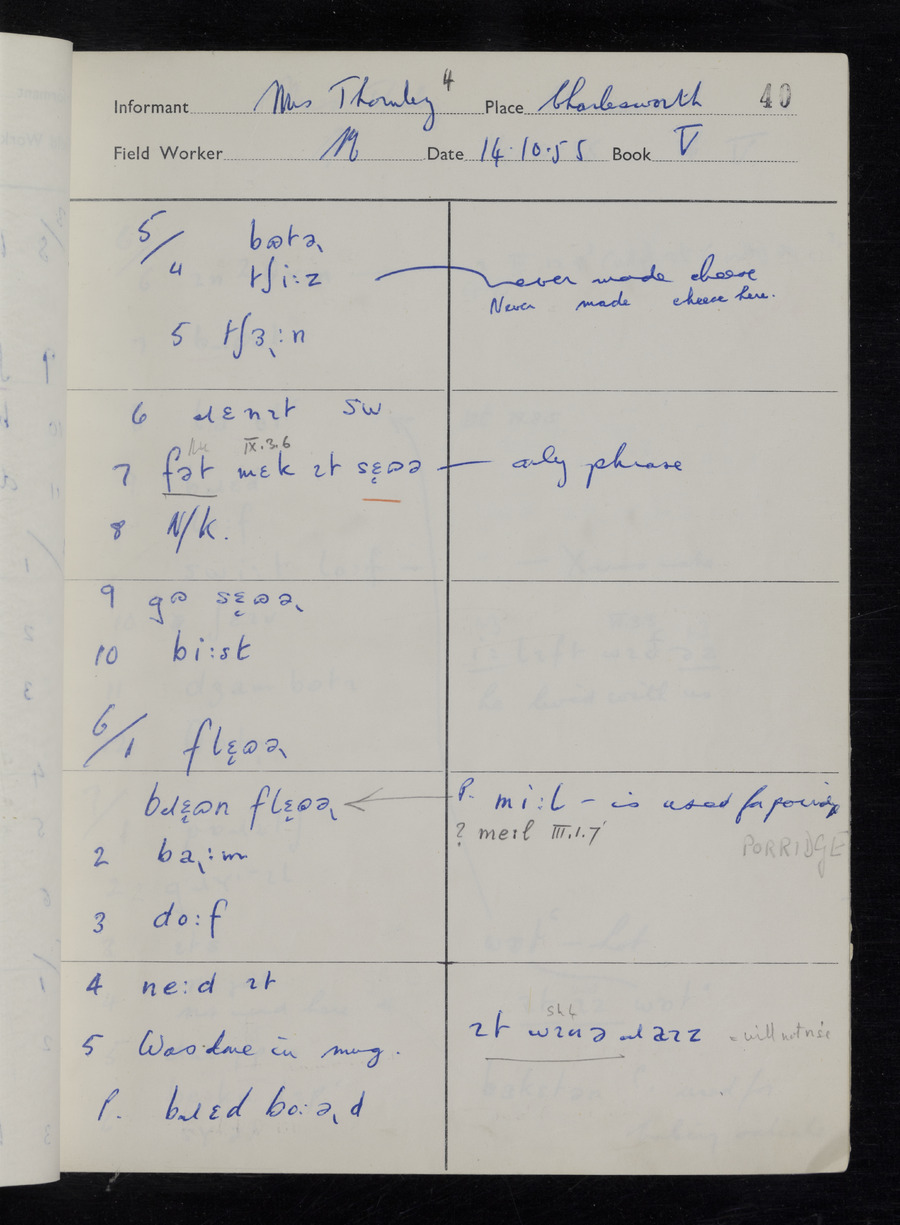 Informant Mrs Thornley 4 Place Charlesworth 40
Field Worker M Date 14.10.55 Book V
5/ bɷtə˞
4 tʃi:z never made cheese
Never made cheese here.
5 tʃɜ˞:n
6 ɹɛnɪt SW
IX.3.6
7 fət mɛk ɪt sɛ̨ɷə — only phrase
8 N/K.
9 gɷ sɛ̨ɷə˞
10 bi:st
6/1 flɛ̨ɷə˞
bɹɛ̨ɷn flɛ̨ɷə˞ P. mi:l – is used for porridge
? meɪl III.1.7
PORRIDGE
2 ba˞:m
3 do:f
4 ne:d ɪt
5 Was done in mug. ɪt wɪnə ɹaɪz = will not rise
P. bɹɛd bo:ə˞d